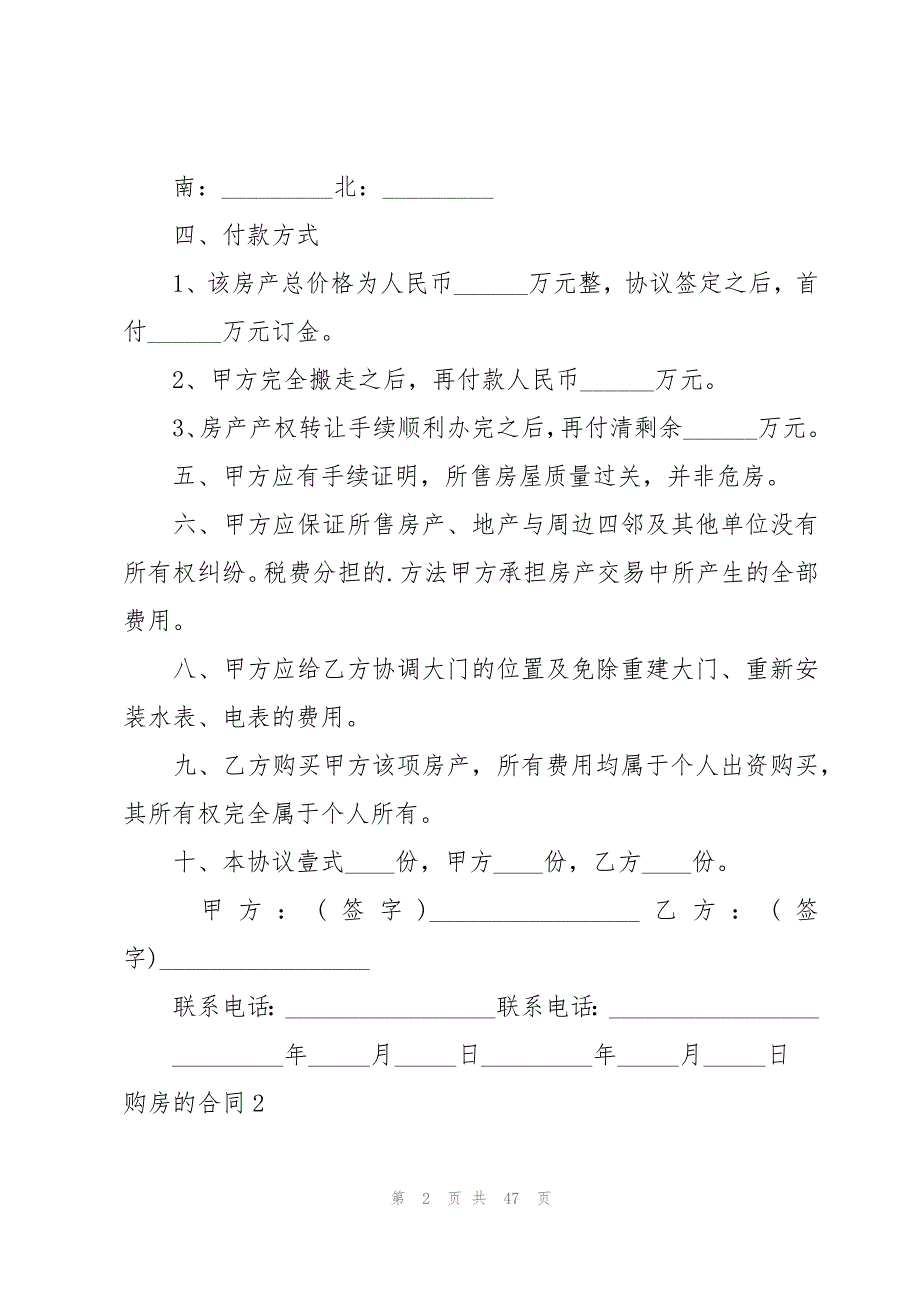 南：_________北：_________
四、付款方式
1、该房产总价格为人民币______万元整，协议签定之后，首
付______万元订金。
2、甲方完全搬走之后，再付款人民币______万元。
3、房产产权转让手续顺利办完之后，再付清剩余______万元。
五、甲方应有手续证明，所售房屋质量过关，并非危房。
六、甲方应保证所售房产、地产与周边四邻及其他单位没有
所有权纠纷。税费分担的.方法甲方承担房产交易中所产生的全部
费用。
八、甲方应给乙方协调大门的位置及免除重建大门、重新安
装水表、电表的费用。
九、乙方购买甲方该项房产，所有费用均属于个人出资购买，
其所有权完全属于个人所有。
十、本协议壹式____份，甲方____份，乙方____份。
甲方：(签字)_________________乙方：(签
字)_________________
联系电话：_________________联系电话：_________________
_________年_____月_____日_________年_____月_____日
购房的合同2
第 2 页 共 47 页